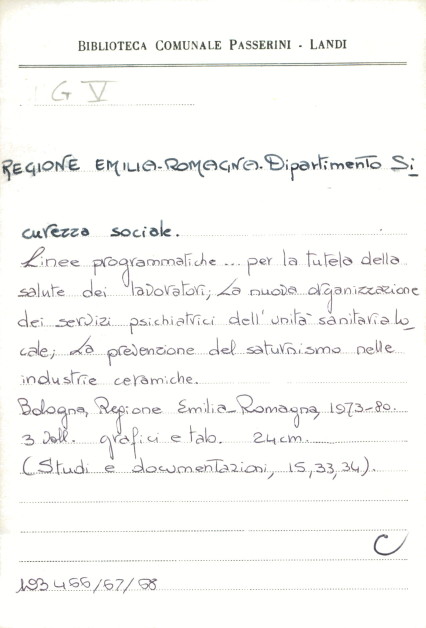 BIBLIOTECA COMUNALE PASSERINI - LANDI
G V
REGIONE EMILIA-ROMAGNA. Dipartimento Si_
curezza sociale.
Linee programmatiche ... per la tutela della
salute dei lavoratori; La nuova organizzazione
dei servizi psichiatrici dell'unità sanitaria lo_
cale; La prevenzione del saturnismo nelle
industrie ceramiche.
Bologna, Regione Emilia-Romagna, 1973-80.
3 voll. grafici e tab. 24 cm.
(Studi e documentazioni, 15, 33, 34).
C
193466/67/68